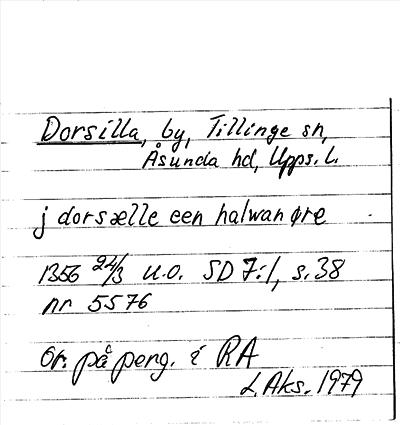 Dorsilla, by, Tillinge sn,
Åsunda hd, Upps. L.
j dorsælle een halwan øre
1356 24/3 u.o. SD 7:1, s. 38
nr 5576
Or. på perg. i RA
L. Aks. 1979